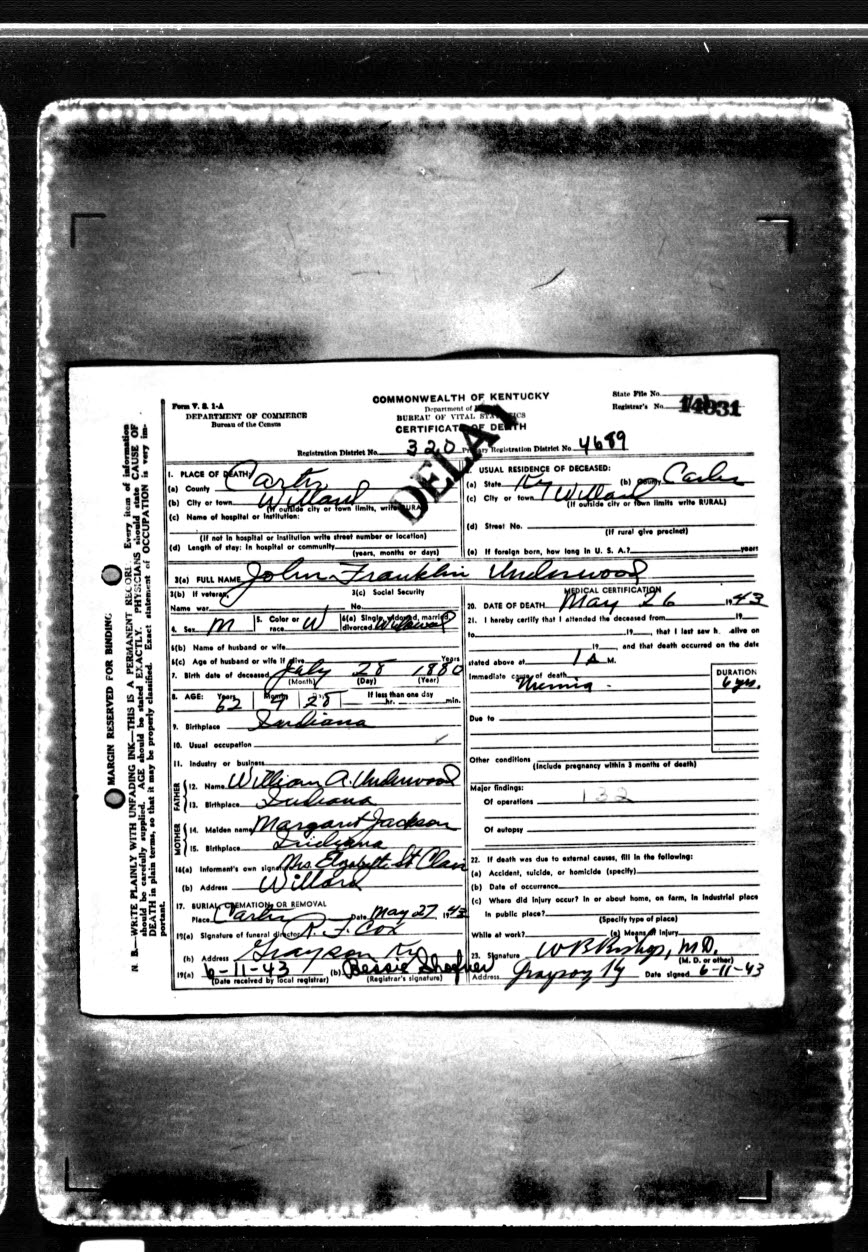 Form V. S. 1-A
DEPARTMENT OF COMMERCE
Bureau of the Census
COMMONWEALTH OF KENTUCKY
Department of
BUREAU OF VITAL STATISTICS
CERTIFICATE OF DEATH
State File No.
Registrar's No. 14031
DELAY
Registration District No. 320 Primary Registration District No. 4689
1. PLACE OF DEATH:
(a) County Carter
(b) City or town Willard
(If outside city or town limits, write RURAL)
(c) Name of hospital or institution:
(If not in hospital or institution write street number or location)
(d) Length of stay: In hospital or community
(years, months or days)
USUAL RESIDENCE OF DECEASED:
(a) State Ky (b) County Carter
(c) City or town Willard
(If outside city or town limits write RURAL)
(d) Street No.
(If rural give precinct)
(e) If foreign born, how long in U. S. A.? years
3(a) FULL NAME John Franklin Underwood
3(b) If veteran, 3(c) Social Security
Name war No.
4. Sex M 5. Color or race W 6(a) Single, widowed, married, divorced Widowed
6(b) Name of husband or wife
6(c) Age of husband or wife if alive Years
7. Birth date of deceased July 28 1880
(Month) (Day) (Year)
8. AGE: Years Months Days If less than one day
62 9 28 hr. min.
9. Birthplace Indiana
10. Usual occupation
11. Industry or business
FATHER
12. Name William A. Underwood
13. Birthplace Indiana
MOTHER
14. Maiden name Margaret Jackson
15. Birthplace Indiana
16(a) Informent's own signature Mrs. Elizabeth St Clair
(b) Address Willard
17. BURIAL, CREMATION, OR REMOVAL
Place Carter Date May 27 1943
19(a) Signature of funeral director R. F. Cox
(b) Address Grayson Ky
19(a) 6-11-43 (b) Bessie
(Date received by local registrar) (Registrar's signature)
MEDICAL CERTIFICATION
20. DATE OF DEATH May 26 1943
21. I hereby certify that I attended the deceased from 19
to 19, that I last saw h. alive on
19, and that death occurred on the date
stated above at 1 A M.
Immediate cause of death
DURATION
6 yrs.
Due to
Other conditions
(Include pregnancy within 3 months of death)
Major findings:
Of operations 132
Of autopsy
22. If death was due to external causes, fill in the following:
(a) Accident, suicide, or homicide (specify)
(b) Date of occurrence
(c) Where did injury occur? In or about home, on farm, in industrial place
in public place?
(Specify type of place)
While at work? (e) Means of injury
23. Signature W B Bishop, M.D.
(M. D. or other)
Address Grayson Ky Date signed 6-11-43
MARGIN RESERVED FOR BINDING
N. B.—WRITE PLAINLY WITH UNFADING INK—THIS IS A PERMANENT RECORD. Every item of information
should be carefully supplied. AGE should be stated EXACTLY. PHYSICIANS should state CAUSE OF
DEATH in plain terms, so that it may be properly classified. Exact statement of OCCUPATION is very im-
portant.